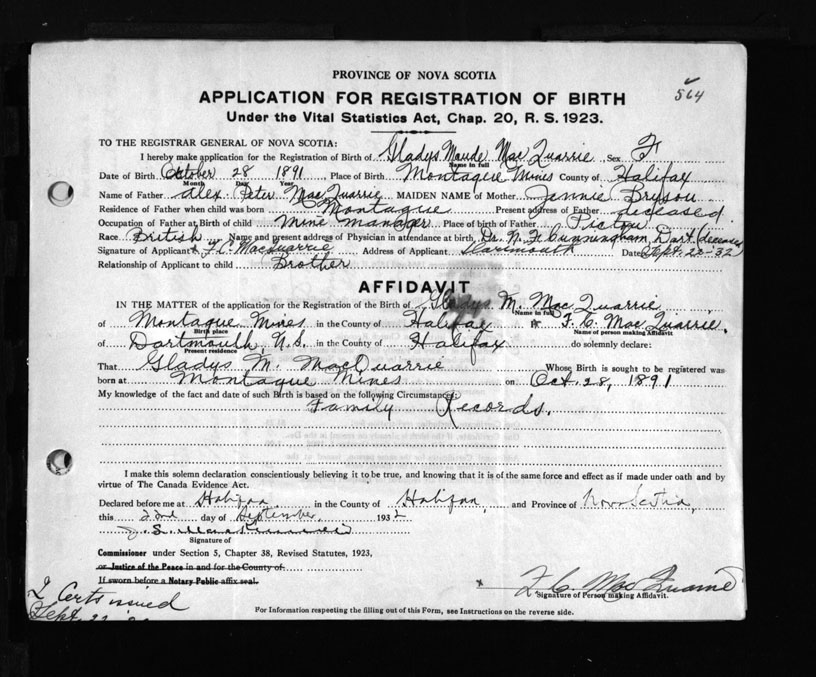 PROVINCE OF NOVA SCOTIA
564
APPLICATION FOR REGISTRATION OF BIRTH
Under the Vital Statistics Act, Chap. 20, R. S. 1923.
TO THE REGISTRAR GENERAL OF NOVA SCOTIA:
I hereby make application for the Registration of Birth of Gladys Maude MacQuarrie Sex F
Name in full
Date of Birth October 28 1891 Place of Birth Montague Mines County of Halifax
Month Day Year
Name of Father Alex Peter MacQuarrie MAIDEN NAME of Mother Jennie Bryson
Residence of Father when child was born Montague Present address of Father deceased
Occupation of Father at Birth of child Mine Manager Place of birth of Father Pictou
Race British Name and present address of Physician in attendance at birth Dr. N. F. Cunningham Dart (deceased)
Signature of Applicant F. C. MacQuarrie Address of Applicant Dartmouth Date Sept. 22-32
Relationship of Applicant to child Brother
AFFIDAVIT
IN THE MATTER of the application for the Registration of the Birth of Gladys M. MacQuarrie
Name in full
of Montague Mines in the County of Halifax F. C. MacQuarrie.
Birth place Name of person making Affidavit
of Dartmouth, N.S. in the County of Halifax do solemnly declare:
Present residence
That Gladys M. MacQuarrie Whose Birth is sought to be registered was
born at Montague Mines on Oct. 28, 1891
My knowledge of the fact and date of such Birth is based on the following Circumstances:
Family Records.
I make this solemn declaration conscientiously believing it to be true, and knowing that it is of the same force and effect as if made under oath and by
virtue of The Canada Evidence Act.
Declared before me at Halifax in the County of Halifax, and Province of Nova Scotia,
this 22nd day of September, 1932
Signature of
Commissioner under Section 5, Chapter 38, Revised Statutes, 1923,
or Justice of the Peace in and for the County of
If sworn before a Notary Public affix seal.
x F. C. MacQuarrie
Signature of Person making Affidavit.
2 Certs issued
Sept. 22
For Information respecting the filling out of this Form, see Instructions on the reverse side.